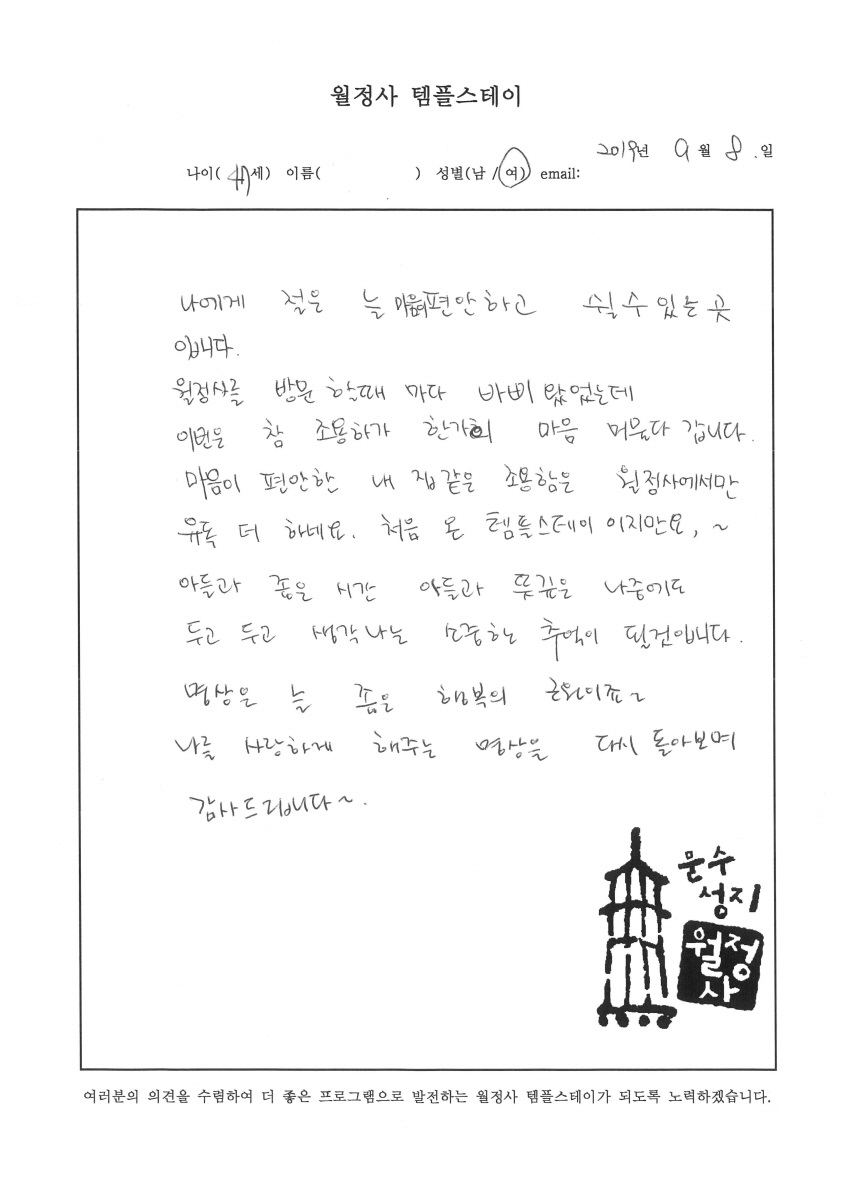 월정사 템플스테이
2019년 9월 8.일
나이( 47세) 이름( ) 성별(남 /여) email:
나에게 절은 늘 마음이편안하고 쉬실 수 있는 곳
입니다.
월정사를 방문 할때 마다 바삐 왔었는데
이번은 참 조용하가 한가희 마음 머물다 갑니다.
마음이 편안한 내 집같은 조용함은 월정사에서만
유독 더 하네요. 처음 온 템플스테이 이지만요, ~
아들과 좋은 시간 아들과 뜻깊은 나중에도
두고 두고 생각나는 소중한 추억이 될것입니다.
명상은 늘 좋은 행복의 근원이죠~
나를 사랑하게 해주는 명상을 다시 돌아보며
감사드립니다~.
문수
성지
월정
사
여러분의 의견을 수렴하여 더 좋은 프로그램으로 발전하는 월정사 템플스테이가 되도록 노력하겠습니다.